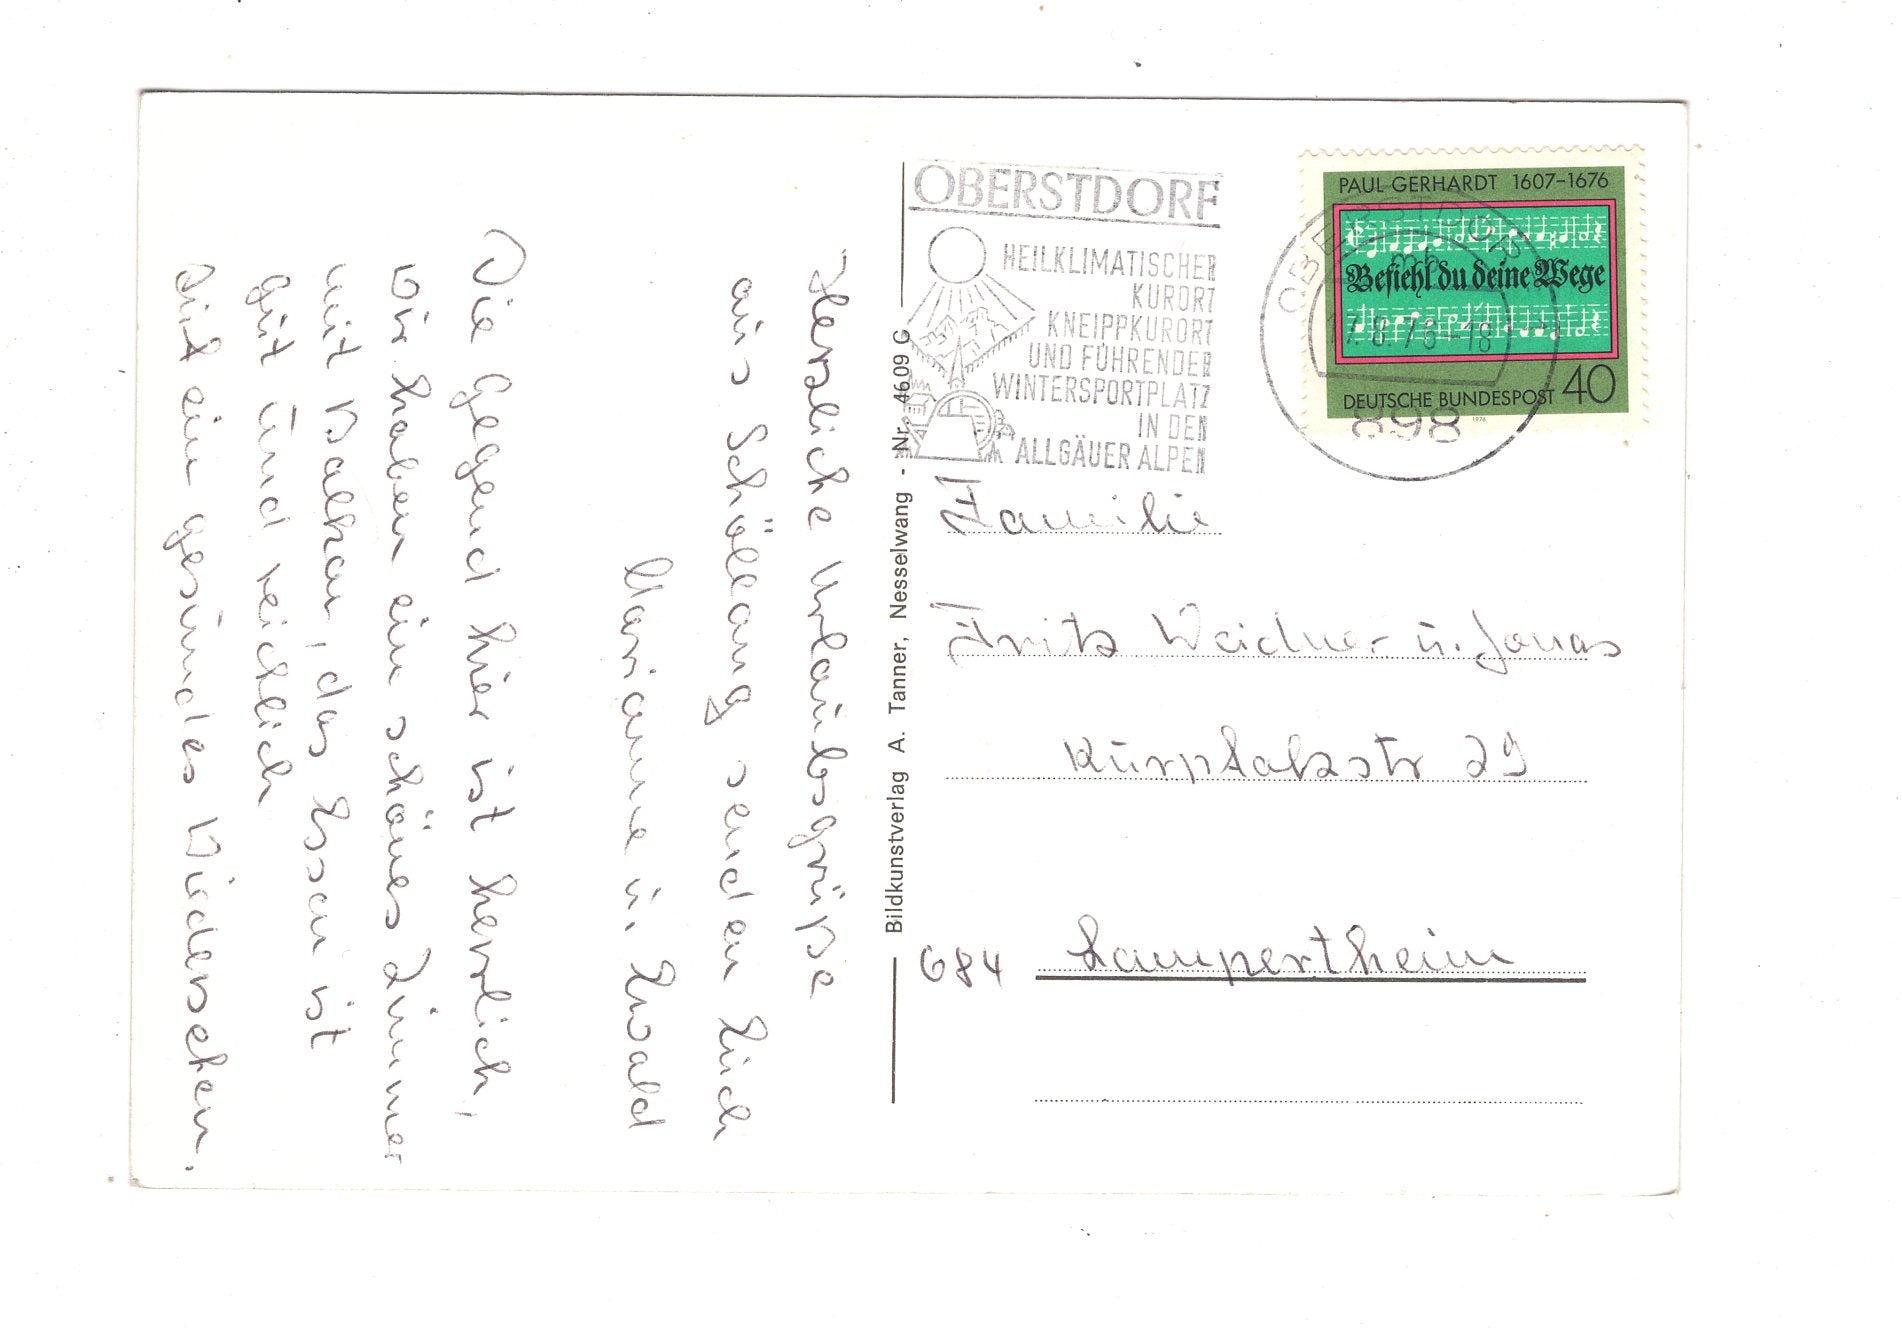 Herzliche Urlaubsgrüße
aus Schöllang senden Euch
Marianne u. Ewald
Die Gegend hier ist herrlich,
wir haben ein schönes Zimmer
mit Balkon, das Essen ist
gut und reichlich
auf ein gesundes Wiedersehen.
Bildkunstverlag A. Tanner, Nesselwang - Nr. 4609 G
OBERSTDORF
HEILKLIMATISCHER
KURORT
KNEIPPKURORT
UND FÜHRENDER
WINTERSPORTPLATZ
IN DEN
ALLGÄUER ALPEN
PAUL GERHARDT 1607-1676
Befiehl du deine Wege
DEUTSCHE BUNDESPOST 40
1976
OBERSTDORF
mh
17.8.76-18
898
Familie
Fritz Weidner u. Jonas
Kurpfalzstr 29
684 Lampertheim